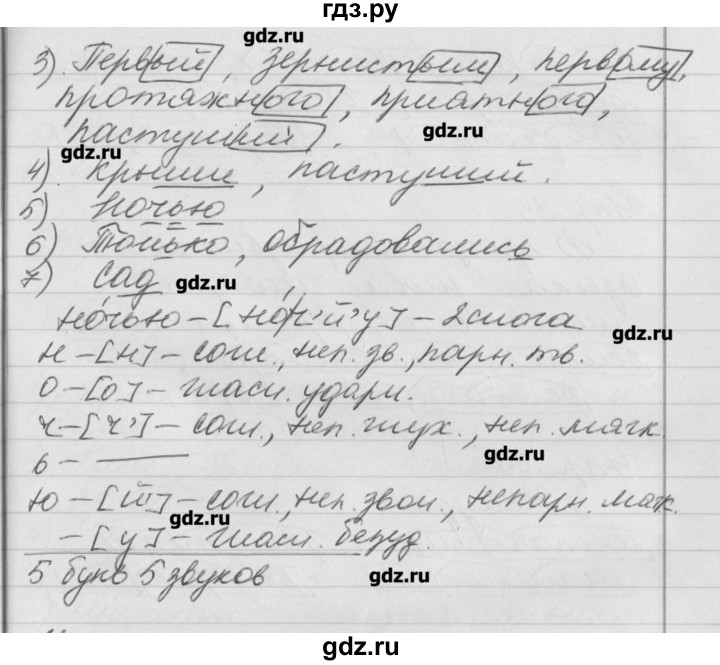 гдз.ру
gdz.ru
3). Первый, зернистым, первому,
протяжного, приятного,
пастуший.
gdz.ru
gdz.ru
4). крыше, пастуший.
5) Ночью
6) Только, обрадовались
7) сад
gdz.ru
но́чью – [но́ч'й'у] – 2 слога
gdz.ru
н – [н] – согл., неп. зв., парн. тв.
о – [о] – гласн. ударн.
ч – [ч'] – согл., неп. глух., неп. мягк.
gdz.ru
ь – ——
ю – [й'] – согл., неп. звон., непарн. мяг.
gdz.ru
– [у] – гласн. безуд.
5 букв 5 звуков
gdz.ru
gdz.ru